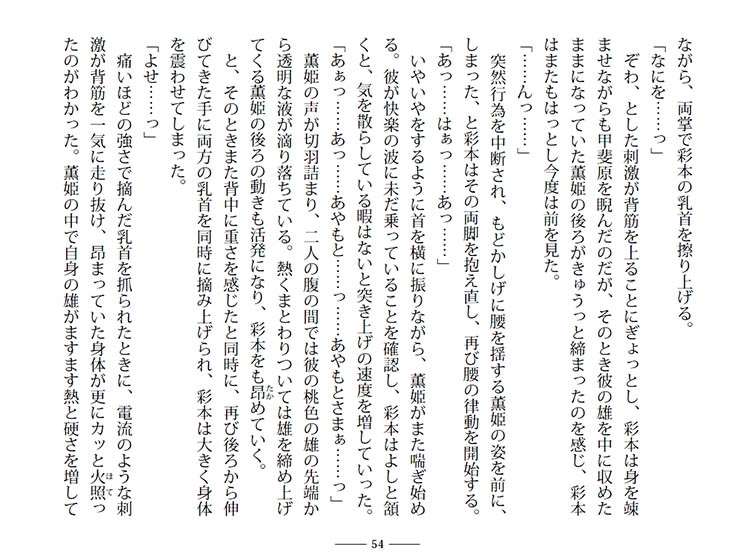 ながら、両掌で彩本の乳首を擦り上げる。
「なにを……っ」
ぞわ、とした刺激が背筋を上ることにぎょっとし、彩本は身を竦
ませながらも甲斐原を睨んだのだが、そのとき彼の雄を中に収めた
ままになっていた薫姫の後ろがきゅうっと締まったのを感じ、彩本
はまたもはっとし今度は前を見た。
「……んっ……」
突然行為を中断され、もどかしげに腰を揺する薫姫の姿を前に、
しまった、と彩本はその両脚を抱え直し、再び腰の律動を開始する。
「あっ……はぁっ……あっ……」
いやいやをするように首を横に振りながら、薫姫がまた喘ぎ始め
る。彼が快楽の波に未だ乗っていることを確認し、彩本はよしと頷
くと、気を散らしている暇はないと突き上げの速度を増していった。
「あぁっ……あっ……あやもと……っ……あやもとさまぁ……っ」
薫姫の声が切羽詰まり、二人の腹の間では彼の桃色の雄の先端か
ら透明な液が滴り落ちている。熱くまとわりついては雄を締め上げ
てくる薫姫の後ろの動きも活発になり、彩本をも昂たかめていく。
と、そのときまた背中に重さを感じたと同時に、再び後ろから伸
びてきた手に両方の乳首を同時に摘み上げられ、彩本は大きく身体
を震わせてしまった。
「よせ……っ」
痛いほどの強さで摘んだ乳首を抓られたときに、電流のような刺
激が背筋を一気に走り抜け、昂まっていた身体が更にカッと火照ほてっ
たのがわかった。薫姫の中で自身の雄がますます熱と硬さを増して
54